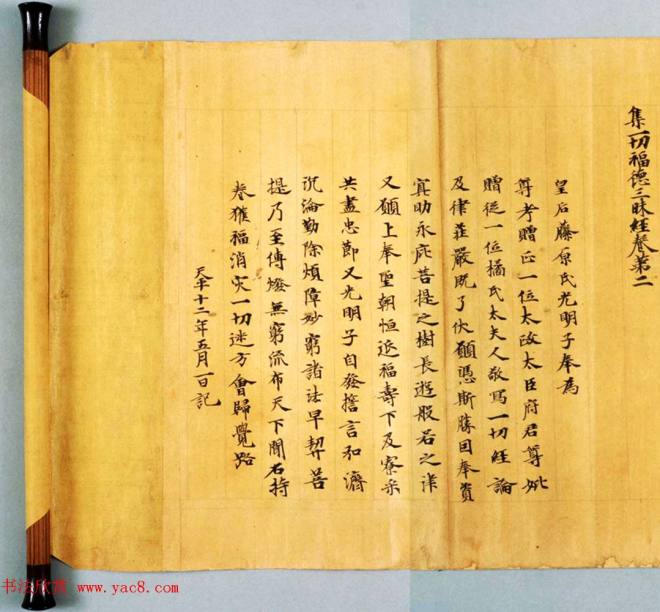 集一切福德三昧經卷第二
皇后藤原氏光明子奉爲
尊考贈正一位太政太臣府君尊妣
贈從一位橘氏太夫人敬寫一切經論
及律莊嚴既了伏願憑斯勝因奉資
冥助永庇菩提之樹長遊般若之津
又願上奉聖朝恒延福壽下及寮采
共盡忠節又光明子自發誓言弘濟
沉淪勤除煩障妙窮諸法早契菩
提乃至傳燈無窮流布天下聞名持
卷獲福消灾一切迷方會歸覺路
天平十二年五月一日記
书法欣赏 www.yac8.com